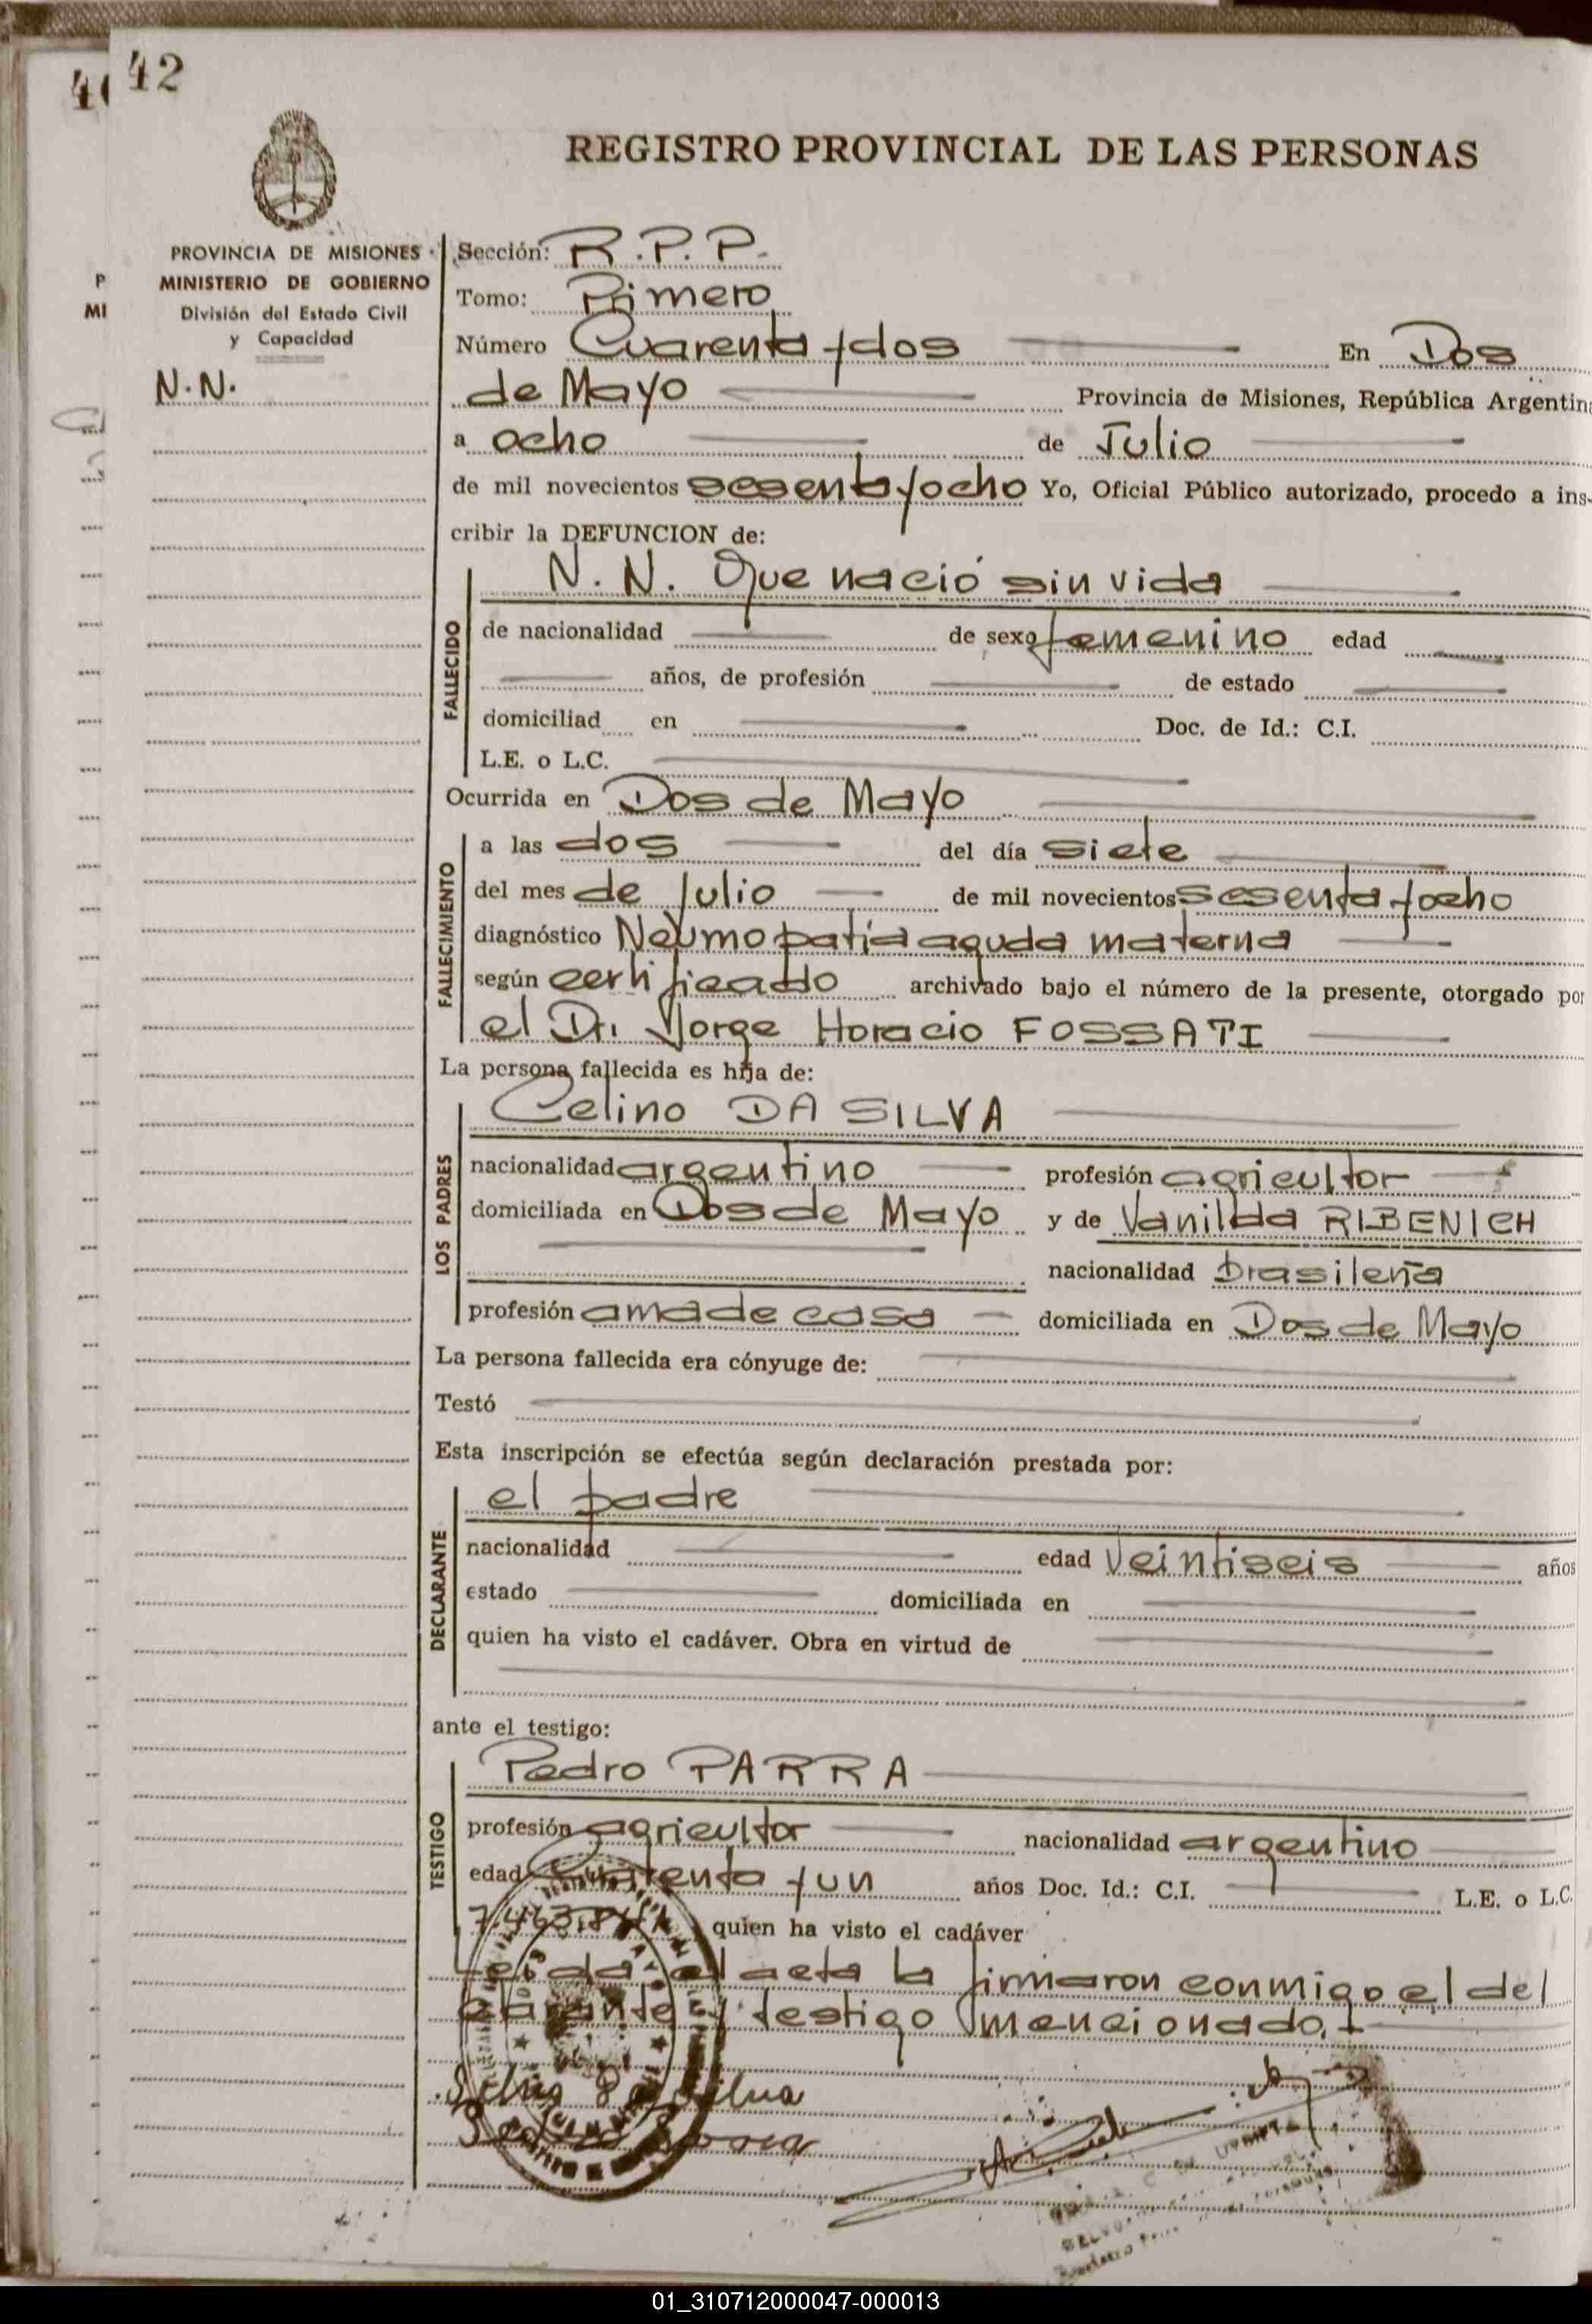 42
REGISTRO PROVINCIAL DE LAS PERSONAS
PROVINCIA DE MISIONES
MINISTERIO DE GOBIERNO
División del Estado Civil
y Capacidad
N.N.
Sección: R.P.P.
Tomo: Primero
Número Cuarenta y dos En Dos
de Mayo Provincia de Misiones, República Argentin
a ocho de Julio
de mil novecientos sesenta y ocho Yo, Oficial Público autorizado, procedo a ins-
cribir la DEFUNCION de:
N. N. Que nació sin vida
FALLECIDO
de nacionalidad de sexo femenino edad
años, de profesión de estado
domiciliad en Doc. de Id.: C.I.
L.E. o L.C.
Ocurrida en Dos de Mayo
FALLECIMIENTO
a las dos del día siete
del mes de Julio de mil novecientos sesenta y ocho
diagnóstico Neumopatia aguda materna
según certificado archivado bajo el número de la presente, otorgado por
el Dr. Jorge Horacio FOSSATI
La persona fallecida es hija de:
LOS PADRES
Celino DA SILVA
nacionalidad argentino profesión agricultor
domiciliada en Dos de Mayo y de Vanilda RIBENICH
nacionalidad brasileña
profesión ama de casa domiciliada en Dos de Mayo
La persona fallecida era cónyuge de:
Testó
Esta inscripción se efectúa según declaración prestada por:
DECLARANTE
el padre
nacionalidad edad veintiseis años
estado domiciliada en
quien ha visto el cadáver. Obra en virtud de
ante el testigo:
TESTIGO
Pedro PARRA
profesión agricultor nacionalidad argentino
edad cuarenta y un años Doc. Id.: C.I. L.E. o L.C.
quien ha visto el cadáver
Leida el acta la firmaron conmigo el del
clarante y testigo mencionado.
01_310712000047-000013